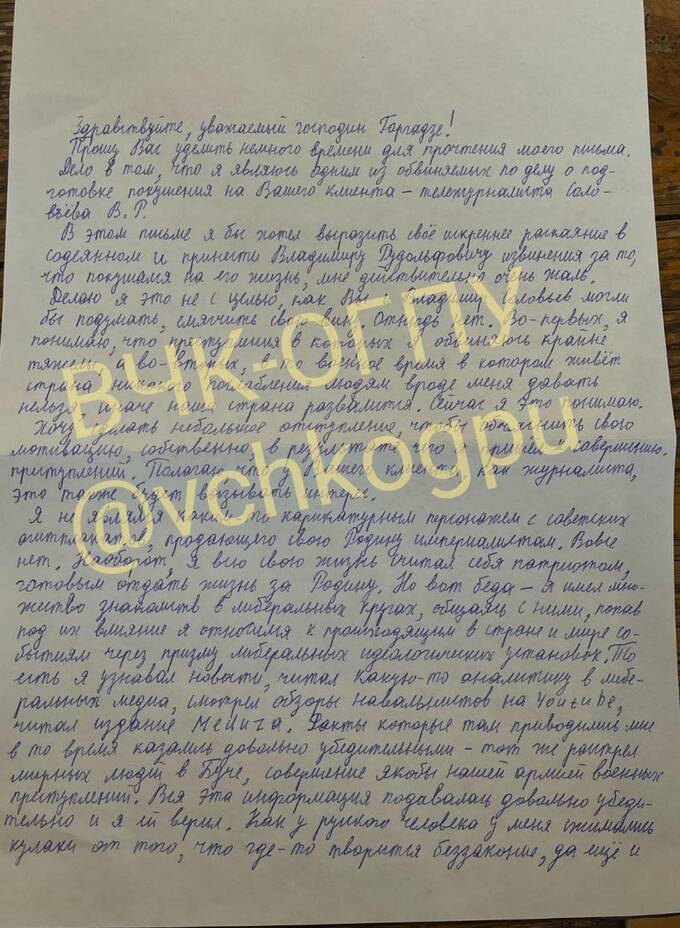 Здравствуйте, уважаемый господин Гаргадзе!
Прошу Вас уделить немного времени для прочтения моего письма.
Дело в том, что я являюсь одним из обвиняемых по делу о под-
готовке покушения на Вашего клиента – тележурналиста Соло-
вьёва В.Р.
В этом письме я бы хотел выразить своё искреннее раскаяние в
содеянном и принести Владимиру Рудольфовичу извинения за то,
что покушался на его жизнь, мне действительно очень жаль.
Делаю я это не с целью, как Вы и Владимир Соловьев могли
бы подумать, смягчить свою вину. Отнюдь нет. Во-первых, я
понимаю, что преступления в которых я обвиняюсь крайне
тяжелы, а во-вторых, в военное время в котором живёт
страна никакого послабления людям вроде меня давать
нельзя, иначе наша страна развалится. Сейчас я это понимаю.
Хочу сделать небольшое отступление, чтобы объяснить свою
мотивацию, собственно, в результате чего я пришел к совершению
приступлений. Полагаю что у Вашего клиента, как журналиста,
это также будет вызывать интерес.
Я не являлся каким-то карикатурным персонажем с советских
агитплакатов, продающего свою Родину империалистам. Вовсе
нет. Наоборот, я всю свою жизнь считал себя патриотом,
готовым отдать жизнь за Родину. Но вот беда – я имел мно-
жество знакомств в либеральных кругах, общаясь с ними, попав
под их влияние я относился к происходящим в стране и мире со-
бытиям через призму либеральных идеологических установок. То
есть я узнавал новости, читал какую-то аналитику в либе-
ральных медиа, смотрел обзоры навальнистов на Youtube,
читал издание Медуза. Факты которые там приводились мне
в то время казались довольно убедительными – тот же расстрел
мирных людей в Буче, совершение якобы нашей армией военных
приступлений. Вся эта информация подавалась довольно убеди-
тельно и я ей верил. Как у русского человека у меня сжимались
кулаки от того, что где-то творится беззаконие, да ещё и
ВЧК-ОГПУ
@vchkogpu